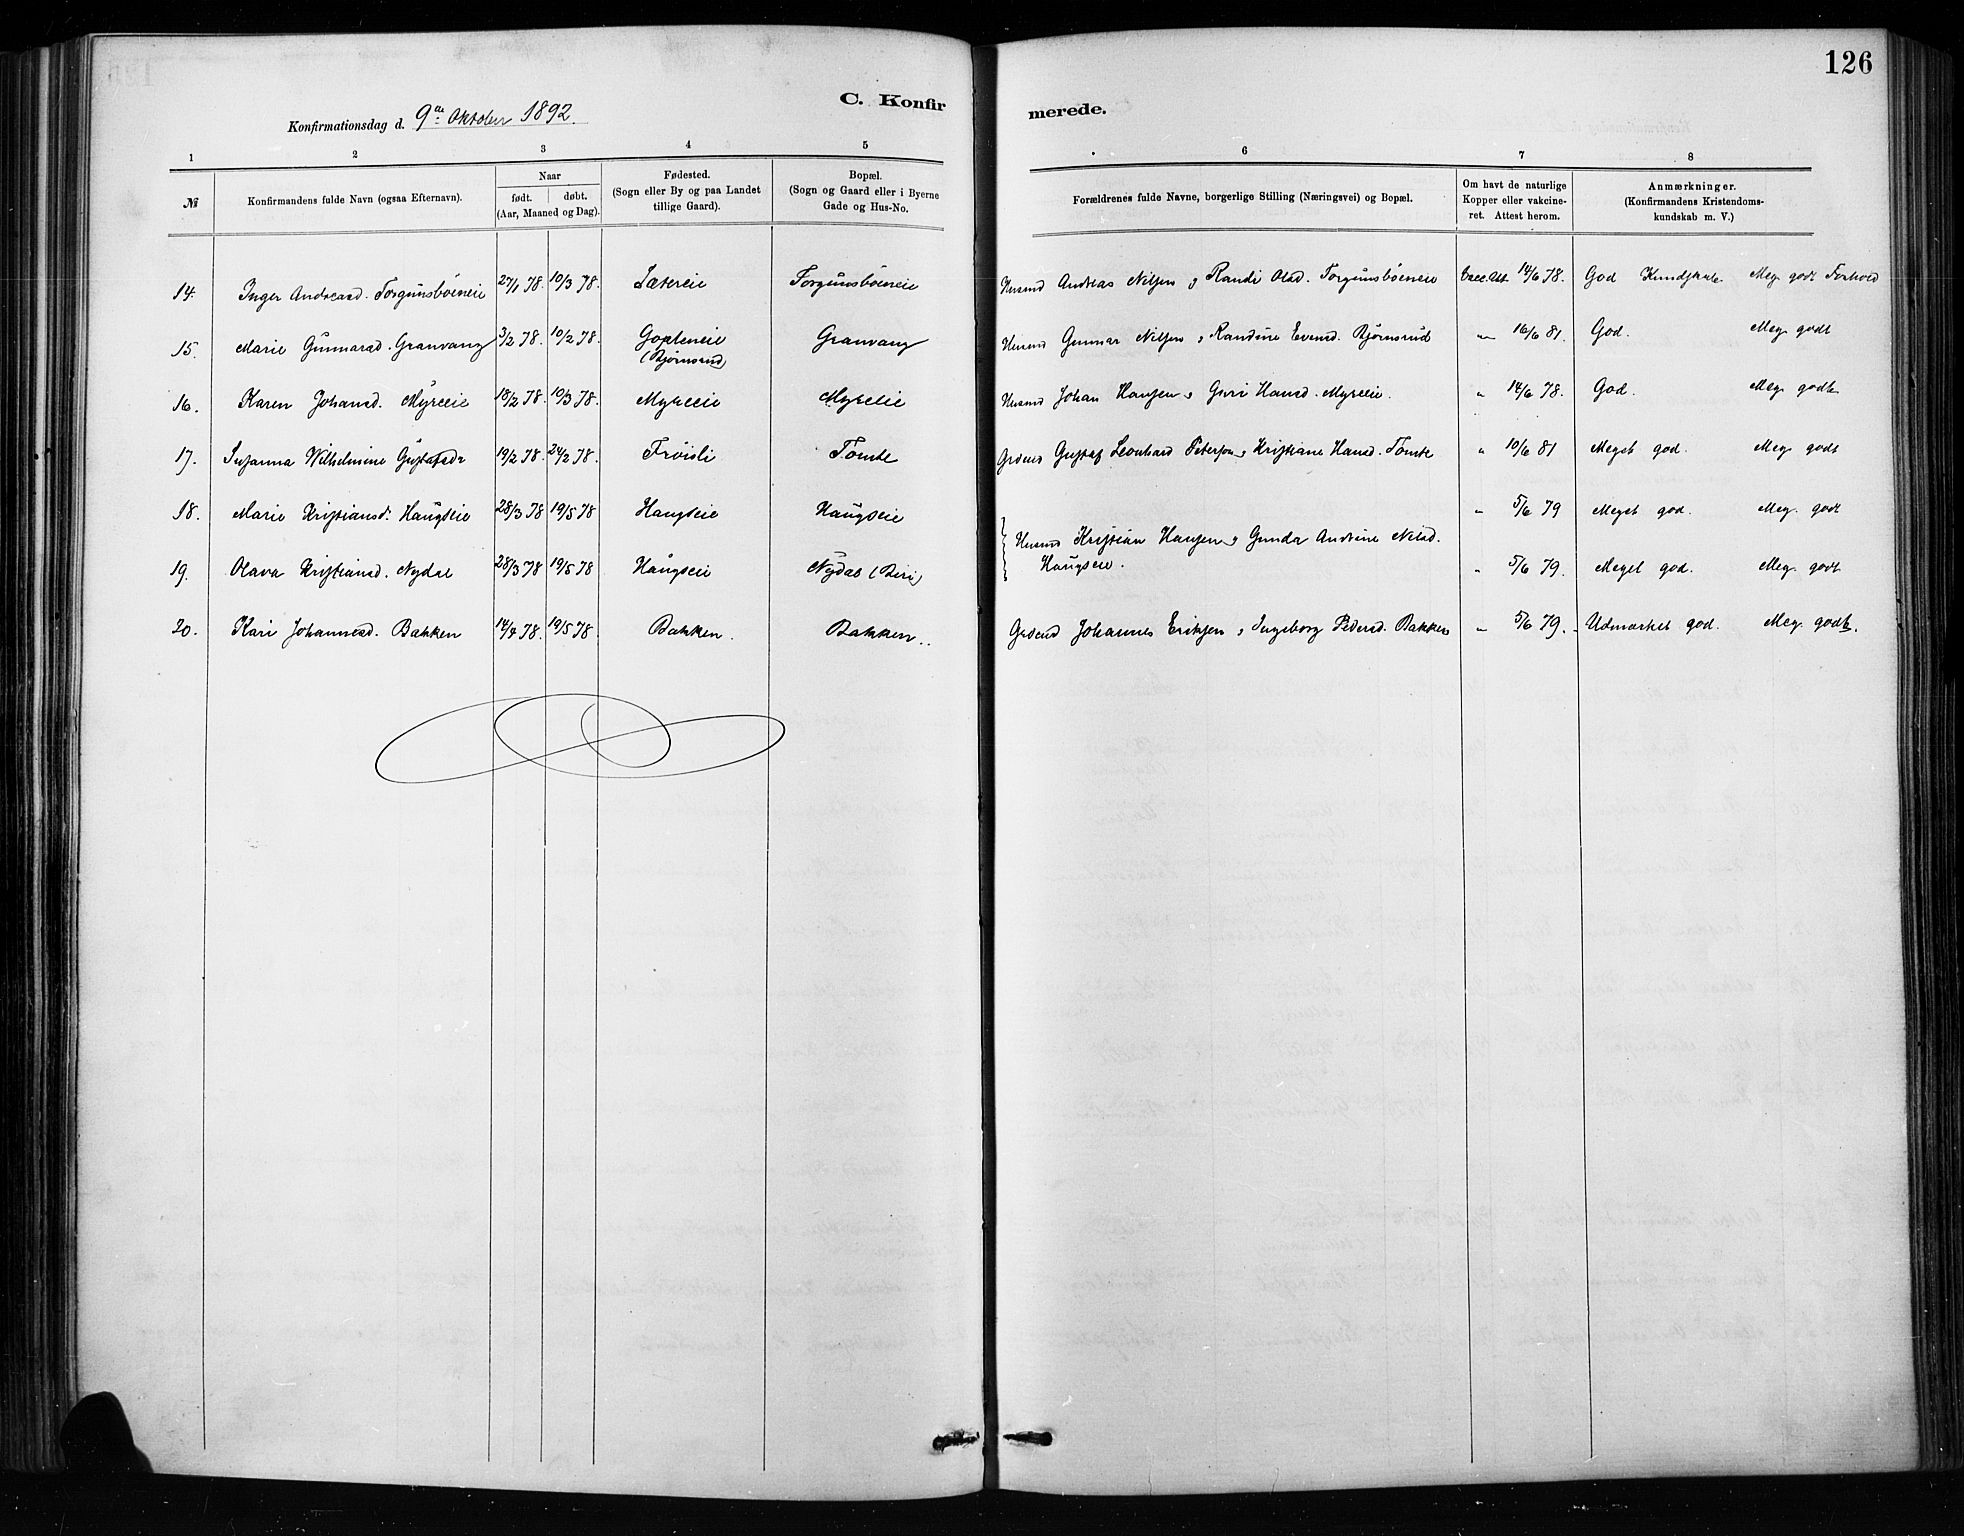 126
C. Konfirmerede.
Konfirmationsdag d. 9de Oktober 1892.
1 2 3 4 5 6 7 8
№ Konfirmandens fulde Navn (ogsaa Efternavn). Naar født. døbt. (Aar, Maaned og Dag). Fødested. (Sogn eller By og paa Landet tillige Gaard). Bopæl. (Sogn og Gaard eller i Byerne Gade og Hus-No. Forældrenes fulde Navne, borgerlige Stilling (Næringsvei) og Bopæl. Om havt de naturlige Kopper eller vakcineret. Attest herom. Anmærkninger. (Konfirmandens Kristendomskundskab m. V.)
14. Inger Andreasd. Torgunsböeneie 27/1 78. 10/3 78. Sætereie Torgunsböeneie Husmd Andreas Nilsen o Randi Olsd. Torgunsböeneie Vacc. Att. 14/6 78. God Kundskab. Meg. godt Forhold
15. Marie Gunnarsd. Granvang 3/2 78. 10/2 78. Gopleneie (Bjørnsrud) Granvang Husmd Gunnar Nilsen o Randine Evensd. Bjørnsrud " 16/6 81. God. Meg. godt
16. Karen Johansd. Myreeie 18/2 78. 10/3 78. Myreeie Myreeie Husmd Johan Hansen o Guri Hansd. Myreeie. " 14/6 78. God. Meg. godt
17. Susanna Wilhelmine Gustafsdr 19/2 78. 24/2 78. Fröisli Tomte Grdmd Gustaf Leonhard Peterson o Kristiane Hansd. Tomte " 10/6 81 Meget god. Meg. godt
18. Marie Kristiansd. Haugseie 28/3 78 19/5 78 Haugseie Haugseie " 5/6 79 Meget god. Meg. godt
Husmd Kristian Hansen o Gunda Andrine Nilsd. Haugseie.
19. Olava Kristiansd. Nydal 28/3 78 19/5 78 Haugseie Nydal (Biri) " 5/6 79. Meget god. Meg. godt
20. Kari Johannesd. Bakken 14/4 78. 19/5 78 Bakken. Bakken.. Grdmd Johannes Eriksen o Ingeborg Pedersd. Bakken " 5/6 79. Udmærket god. Meg. godt.